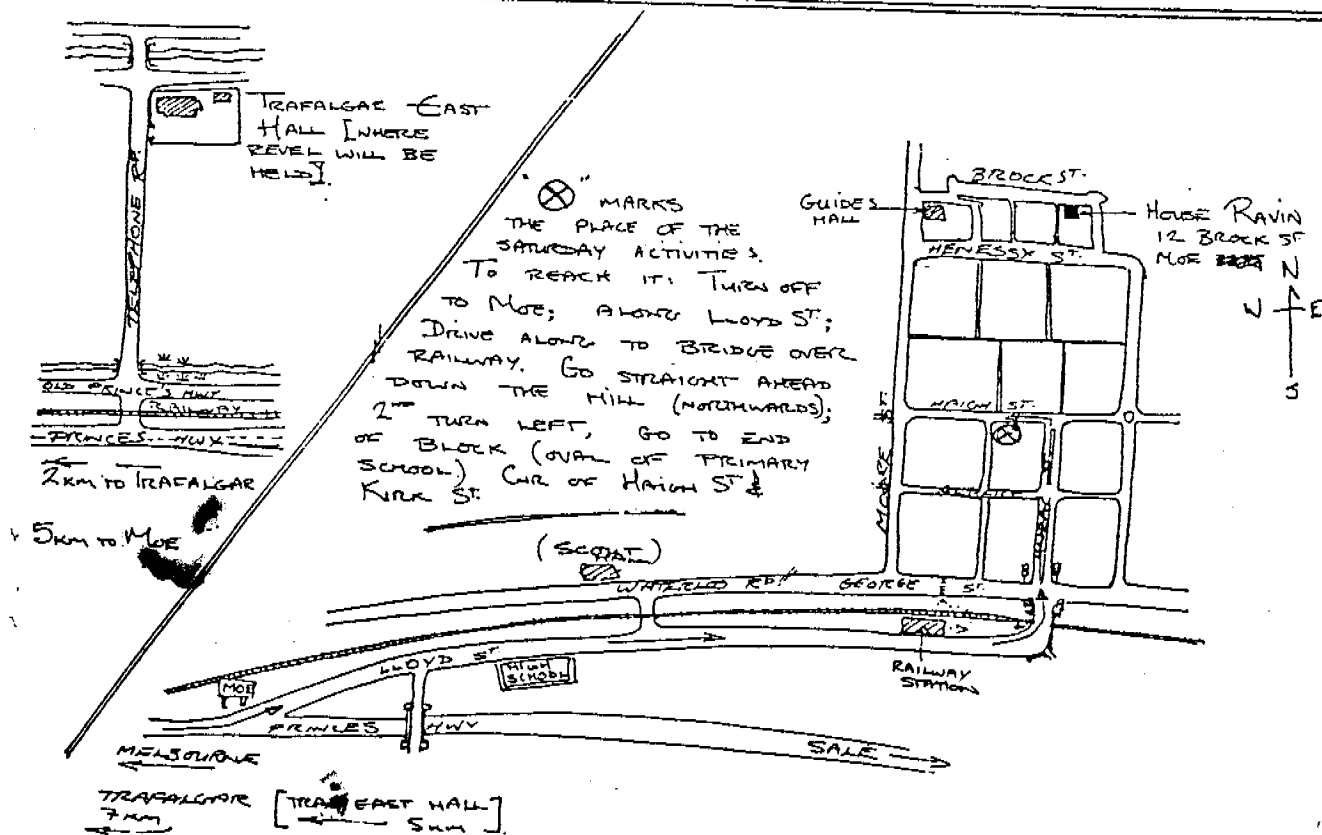 TRAFALGAR EAST
HALL [WHERE
REVEL WILL BE
HELD].
TELEPHONE RD.
OLD PRINCE'S HWY
RAILWAY
PRINCES HWY
2 KM TO TRAFALGAR
5 KM TO MOE
"⊗" MARKS
THE PLACE OF THE
SATURDAY ACTIVITIES.
TO REACH IT: TURN OFF
TO MOE; ALONG LLOYD ST;
DRIVE ALONG TO BRIDGE OVER
RAILWAY. GO STRAIGHT AHEAD
DOWN THE HILL (NORTHWARDS);
2ND TURN LEFT, GO TO END
OF BLOCK (OVAL OF PRIMARY
SCHOOL) CNR OF HAIGH ST &
KIRK ST.
BROCK ST.
GUIDES
HALL
HOUSE RAVIN
12 BROCK ST
MOE
HENESSY ST.
N
W E
S
HAIGH ST.
MOORE ST
(SCOUT)
RD.
GEORGE ST.
LLOYD ST
HIGH
SCHOOL
RAILWAY
STATION
MOE
PRINCES HWY
SALE
MELBOURNE
TRAFALGAR
7 KM
[TRAF EAST HALL]
5 KM